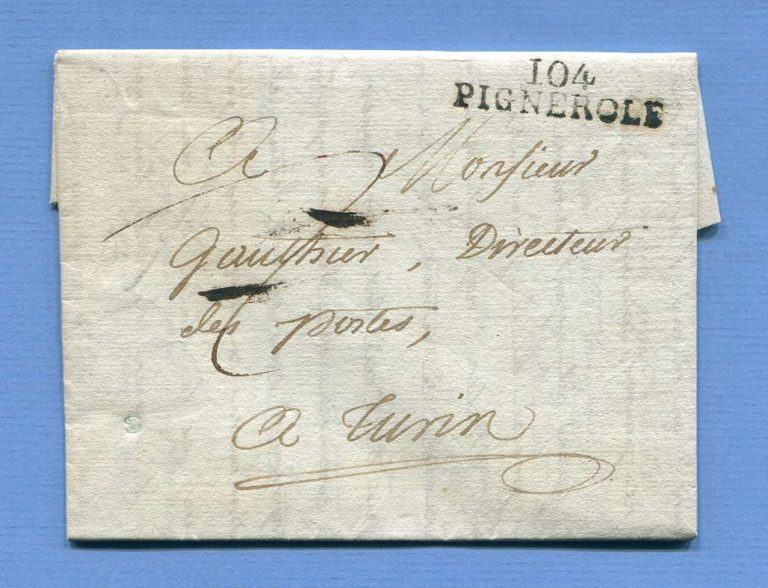 104
PIGNEROLE
A Monsieur
Gauthier, Directeur
des postes,
A Turin